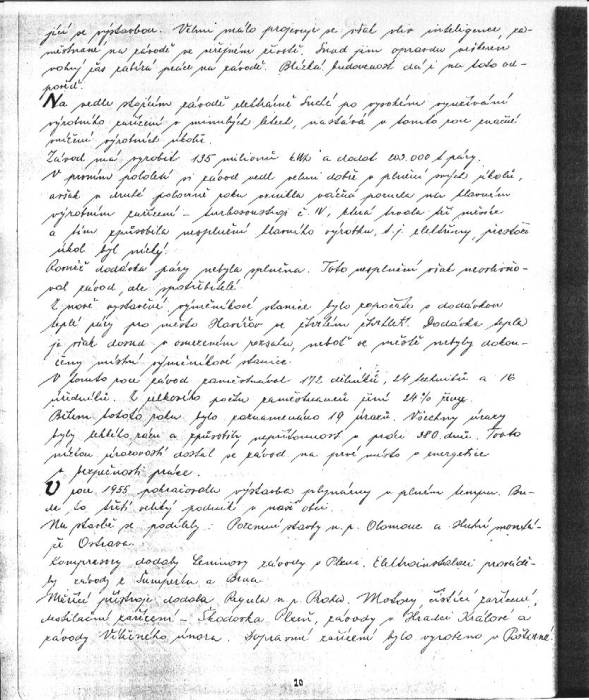 její se výstavbou. Velmi málo projevuje se však vliv inteligence, za-
městnané na závodě ve veřejném životě. Snad jim opravdu veškeren
volný čas zabírá práce na závodě. Blízká budoucnost dá i na toto od-
pověď.
Na vedle stojícím závodě elektrárně Suché po vysokém využívání
výrobního zařízení v minulých letech, nastává v tomto roce značné
snížení výrobních úkolů.
Závod má vyrobit 135 milionů kWh a dodat 203.000 t páry.
V prvním pololetí si závod vedl velmi dobře v plnění svých úkolů,
avšak v druhé polovině roku vznikla vážná porucha na hlavním
výrobním zařízení – turbosoustrojí č. IV, která trvala tři měsíce
a tím způsobila nesplnění hlavního výrobku, t.j. elektřiny, přestože
úkol byl nízký!
Rovněž dodávka páry nebyla splněna. Toto nesplnění však neovlivňo-
val závod, ale spotřebitelé.
Z nově vystavěné výměníkové stanice bylo započato s dodávkou
teplé páry pro město Havířov ve čtvrtém čtvrtletí. Dodávka tepla
je však dosud v omezeném rozsahu, neboť ve městě nebyly dokon-
čeny místní výměníkové stanice.
V tomto roce závod zaměstnával 172 dělníků, 24 techniků a 16
úředníků. Z celkového počtu zaměstnanců činí 24% ženy.
Během tohoto roku bylo zaznamenáno 19 úrazů. Všechny úrazy
byly lehkého rázu a způsobily nepřítomnost v práci 380 dnů. Touto
nízkou úrazovostí dostal se závod na prvé místo v energetice
v bezpečnosti práce.
V roce 1955 pokračovala výstavba plynárny v plném tempu. Bu-
de to třetí velký podnik v naší obci.
Na stavbě se podílely: Pozemní stavby n.p. Olomouc a Hutní montá-
že Ostrava.
Kompresory dodaly Leninovy závody v Plzni. Elektroinstalaci prováďe-
ly závody z Šumperka a Brna.
Měřící přístroje dodala Regula n.p. Praha. Motory, čistící zařízení,
ventilační zařízení – Škodovka Plzeň, závody v Hradci Králové a
závody Vítězného února. Dopravní zařízení bylo vyrobeno v Poštorné
10